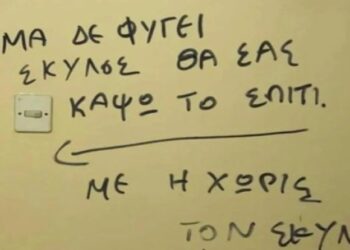 ΜΑ ΔΕ ΦΥΓΕΙ
ΣΚΥΛΟΣ ΘΑ ΣΑΣ
ΚΑΨΩ ΤΟ ΣΠΙΤΙ.
ΜΕ Η ΧΩΡΙΣ
ΤΟΝ ΣΚΥΛ